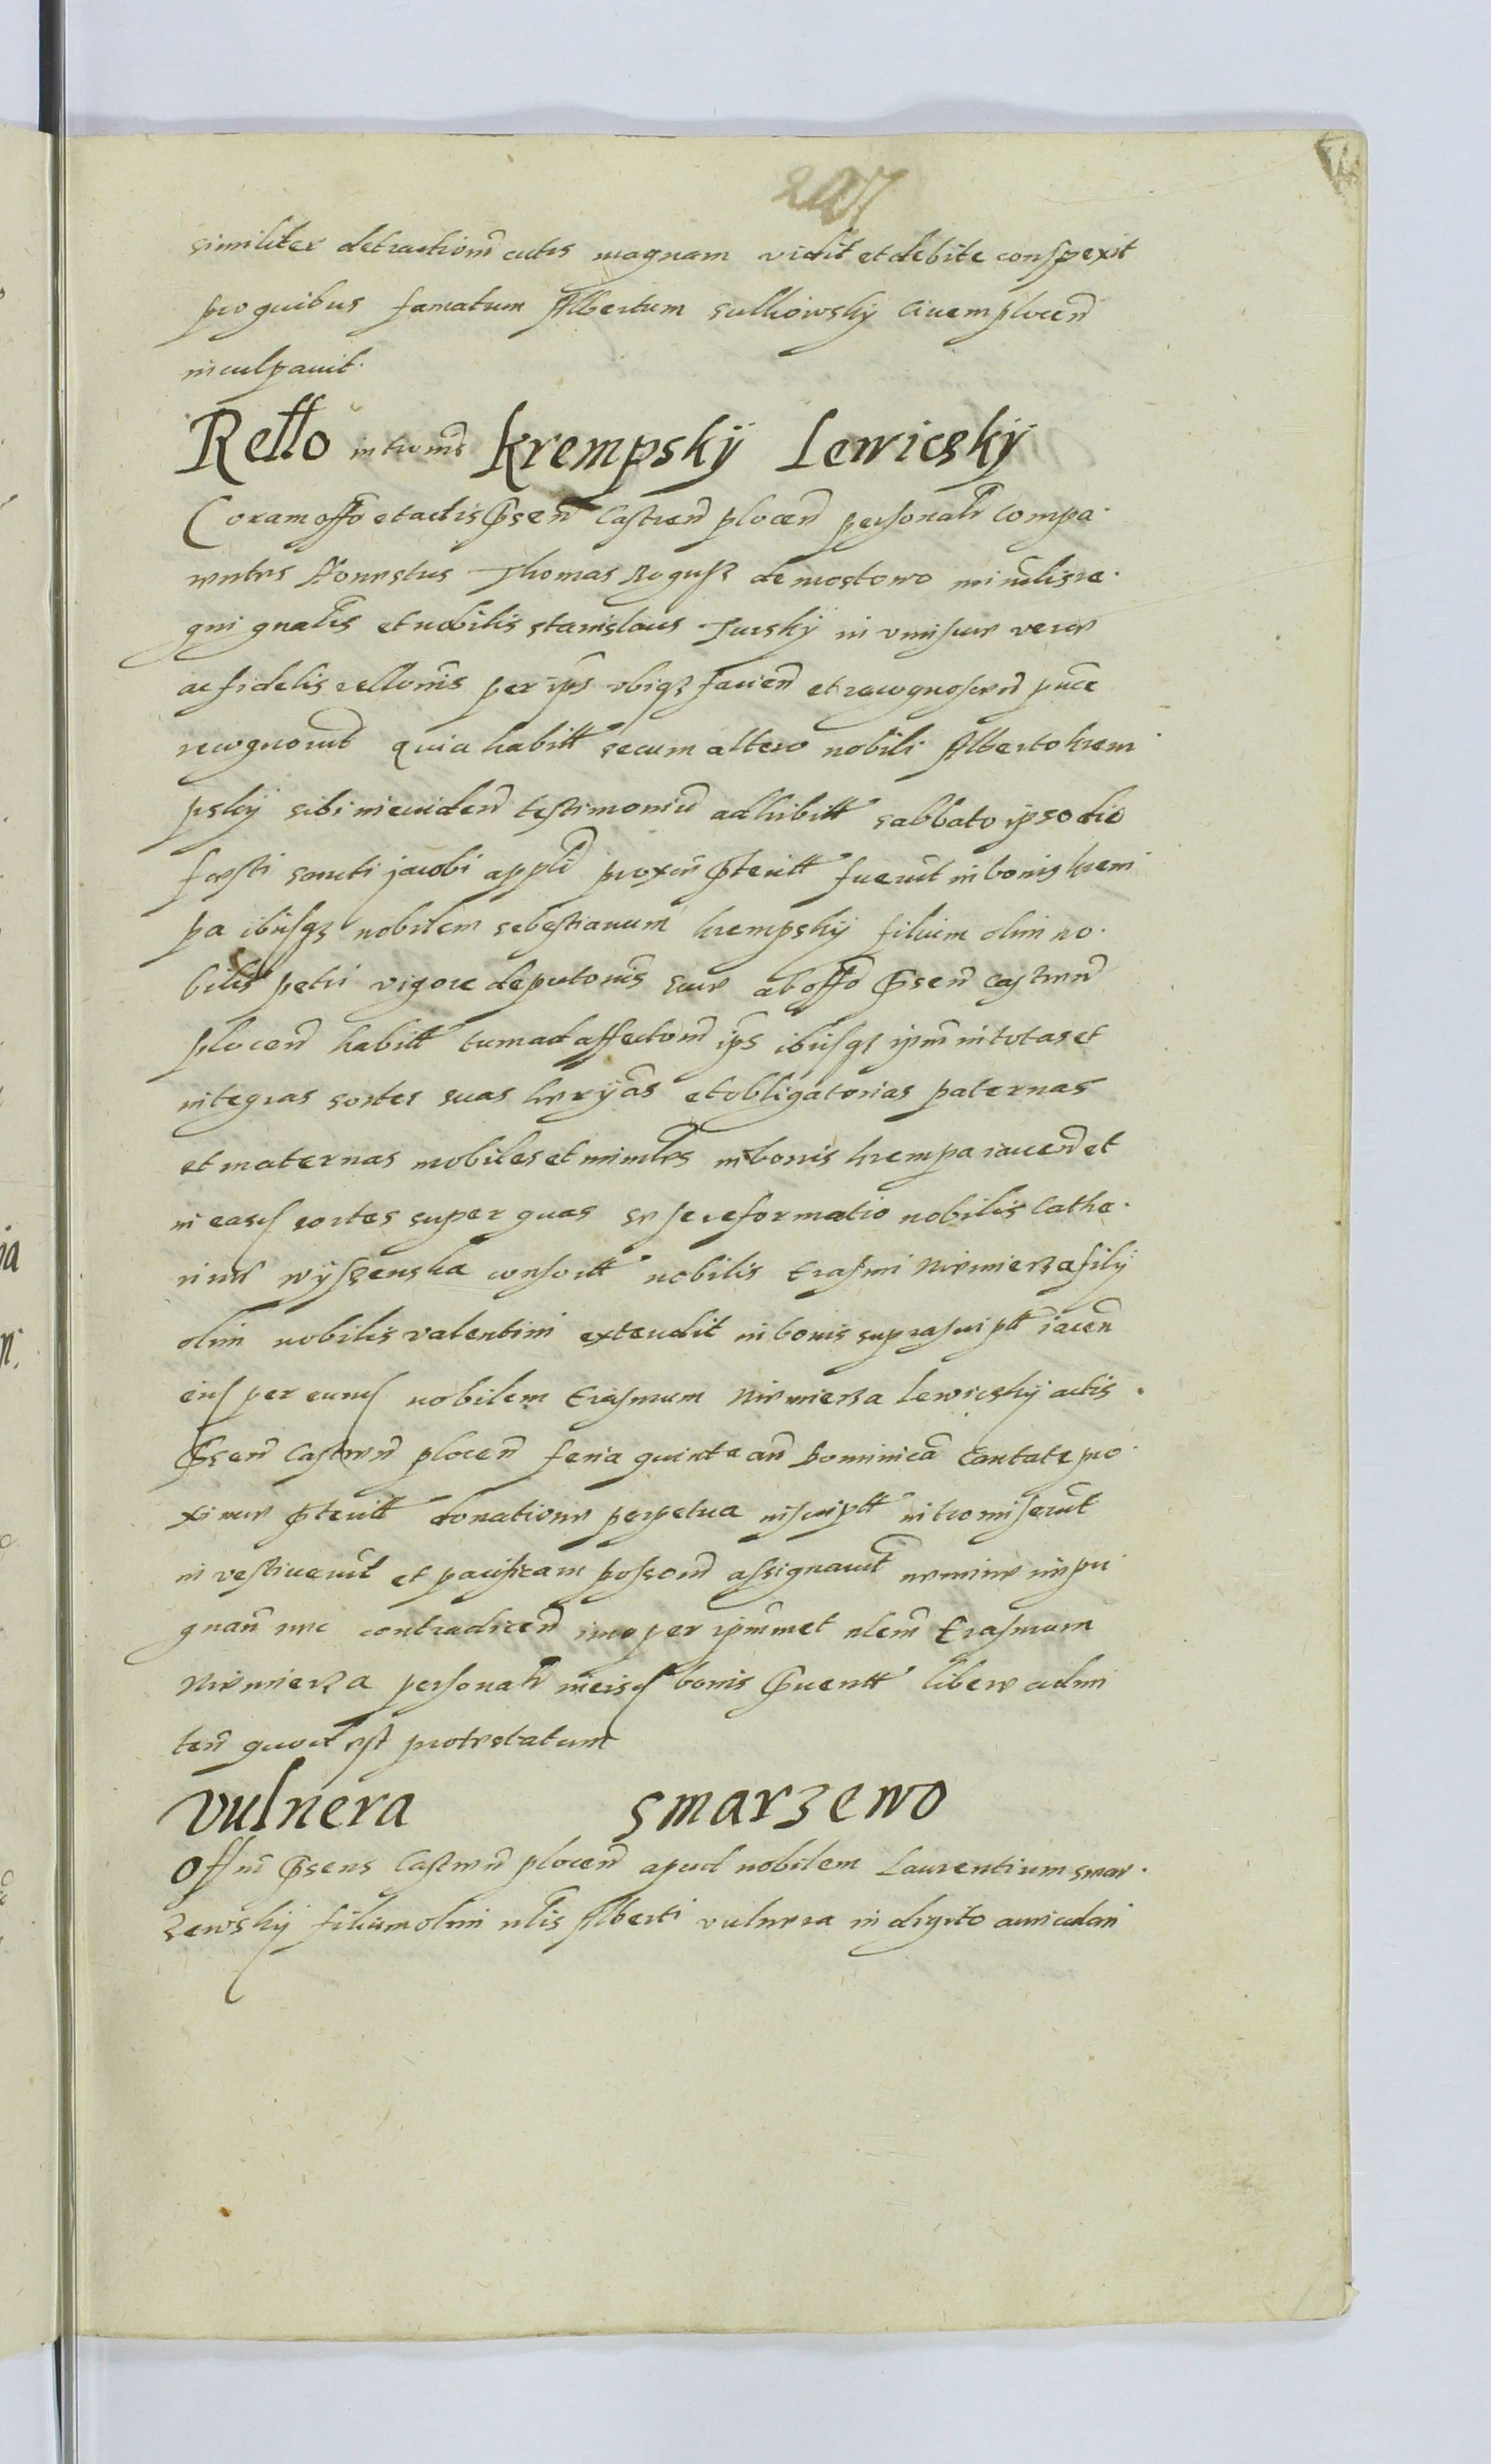 207
similiter detractionē cutis magnam vidit et debite conspexit
pro quibus famatum Albertum sulkowskÿ Ciuem plocen̄
inculpauit.
Rełło intromīs KrempskÿLewicskÿ
Coram offo et actis pn̄sen̄ Castren̄ plocen̄ personalr̄ Compa.
rentes Honestus Thomas Rogusz de mostowo ministlis re.
gni gnalīs et nobilis stanislaus Turskÿ in vim suae verae
ac fidelis rellonīs per ip̄os vbiq3 facien̄ et recognoscen̄ pn̄te
recognouit quia habitt secum altero nobili Alberto krem
pskÿ sibi in euiden̄ testimoniū adhibitt sabbato ipso die
faesti sancti jacobi appli proxim̄ p̄teritt fuerūt in bonis krem
pa ibiq3 nobilem sebestianum krempskÿ filium olim no.
bilis petri vigore deputonīs suae ab offo pn̄sen̄ Castren̄
plocen̄ habitt tum ad affectonē ip̄s ibiq3 ipm̄ in totas et
integras sortes suas haerÿās et obligatorias paternas
et maternas mobiles et immbles in bonis krempa iacen̄ et
in easd sortes super quas se se reformatio nobilis Catha.
rinae wÿszenska consortt nobilis Erasmi Niemierza filÿ
olim nobilis valentini extendit in bonis suprascriptt iacen̄
eid per eund nobilem Erasmum Niemierza Lewicskÿ actis.
pn̄sen̄ Castren̄ plocen̄ feria quinta an̄ Dominicā Cantate pro.
ximae p̄teritt donatione perpetua inscriptt intromiserūt
investiuerūt et pacificam possonē assignauīt nemine impu
gnan̄ nec contradicen̄ imo per ipm̄met nlem̄ Erasmum
Niemierza personalr̄ in eisd bonis p̄uentt libere admi
ten̄ quod est protestatum
vulnera smarzewo
Offm̄ pn̄sens Castren̄ plocen̄ apud nobilem Laurentium smar.
zewskÿ filium olim nlis Alberti vulnera in digito auriculari